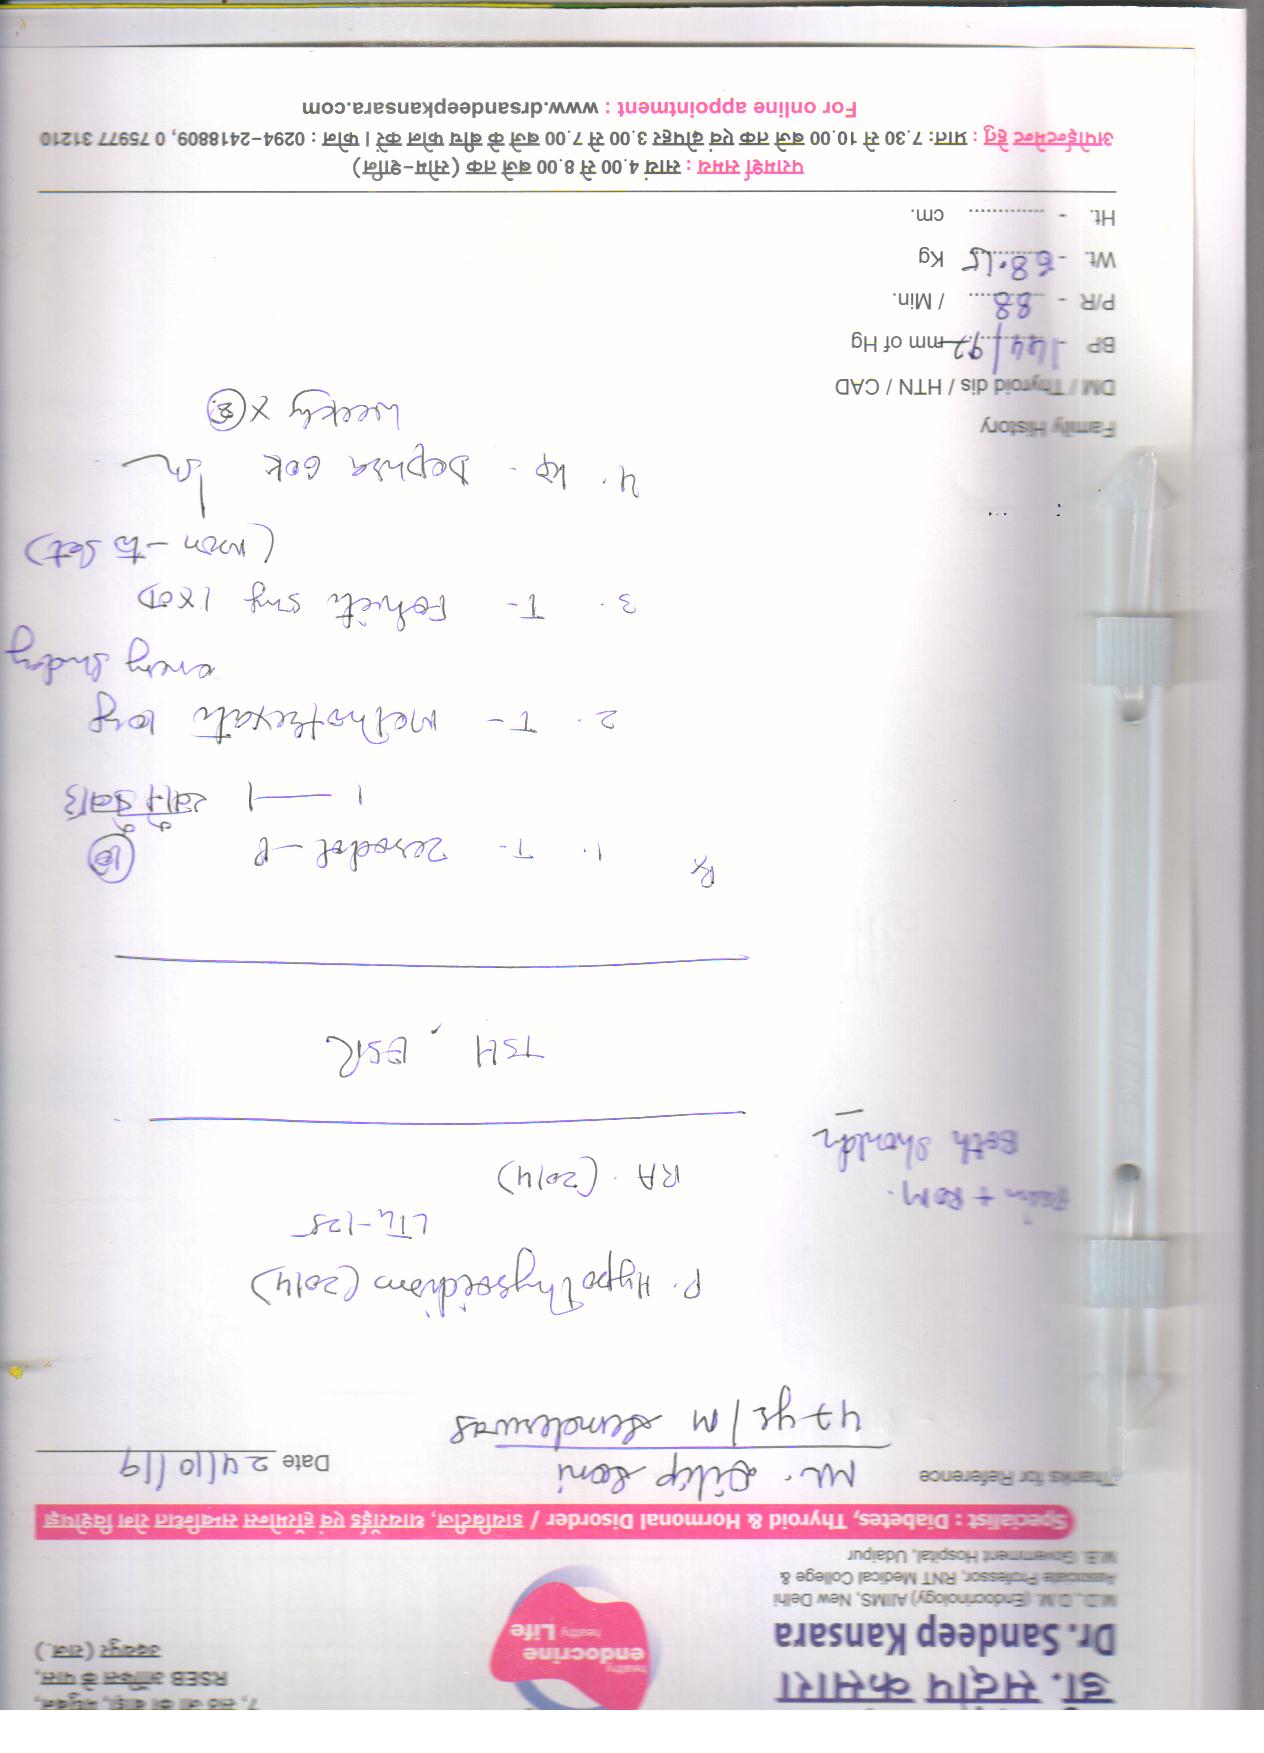 डॉ. संदीप कंसारा
Dr. Sandeep Kansara
M.D., D.M. (Endocrinology) AIIMS, New Delhi
Associate Professor, RNT Medical College &
M.B. Government Hospital, Udaipur
healthy
endocrine
healthy Life
7, सेठ जी की बाड़ी, मधुबन,
RSEB ऑफिस के पास,
उदयपुर (राज.)
Specialist : Diabetes, Thyroid & Hormonal Disorder / डायबिटीज, थायरॉईड एवं हार्मोन्स सम्बन्धित रोग विशेषज्ञ
Thanks for Reference
Mr. Dilip Soni
Date 24/10/19
47 yr / M
P. Hypothyroidism (2014)
LT4-125
RA. (2014)
Pain + ROM.
Both Shoulder
TSH, ESR
Rx
1. T- Zerodol-P
10
1 — 1
2. T- Methotrexate 10mg
every Sunday
3. T- Folvite 5mg 1 x OD
(Mon - to Sat)
4. 60K
weekly x 8
Family History
DM / Thyroid dis / HTN / CAD
BP - 144/92 mm of Hg
P/R - 88 / Min.
Wt. - 68.15 Kg
Ht. - ............. cm.
परामर्श समय : सायं 4.00 से 8.00 बजे तक (सोम-शनि)
अपॉईन्टमेन्ट हेतु : प्रातः 7.30 से 10.00 बजे तक एवं दोपहर 3.00 से 7.00 बजे के बीच फोन करें। फोन : 0294-2418809, 0 75977 31210
For online appointment : www.drsandeepkansara.com